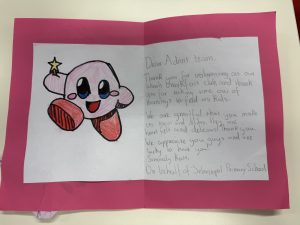 Dear Adroit team,
Thank you for volunteering at our
school breakfast club and thank
you for taking time out of
mornings to feed us kids.
We are grateful that you make
us food and drinks they are
heart felt and delicious! Thank you.
We appreciate you guys and are
lucky to have you!
Sincerely
On behalf of Primary School